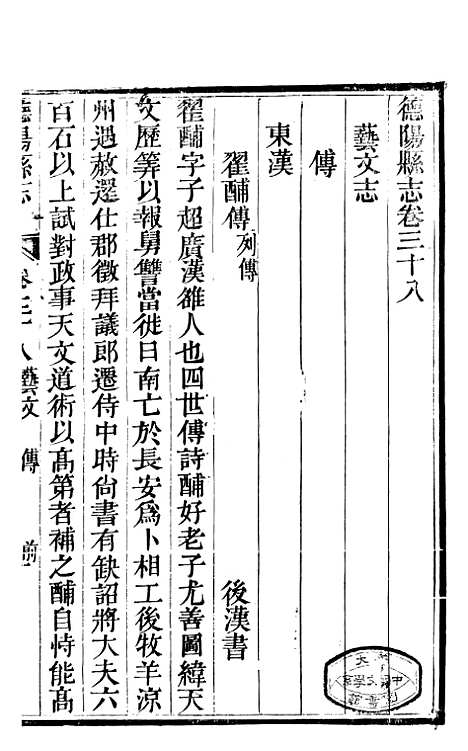 德陽縣志卷三十八
藝文志
傳
東漢
翟酺傳 列傳 後漢書
翟酺字子超廣漢雒人也四世傳詩酺好老子尤善圖緯天
文歷筭以報舅讐當徙日南亡於長安爲卜相工後牧羊涼
州遇赦還仕郡徵拜議郎遷侍中時尙書有缺詔將大夫六
百石以上試對政事天文道術以高第者補之酺自恃能高
德陽縣志 卷三十八藝文 傳 前